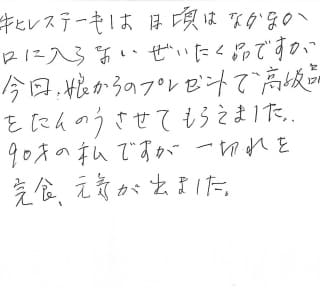 牛ヒレステーキは日頃はなかなか
口に入らないぜいたく品ですが
今回、娘からのプレゼントで高級品
をたんのうさせてもらえました。
90才の私ですが一切れを
完食、元気が出ました。